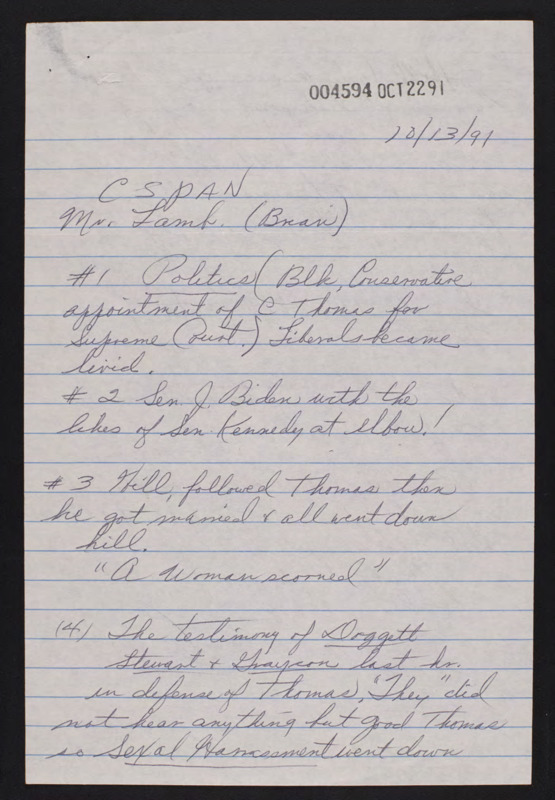 004594 OCT2291
10/13/91
CSPAN
Mr. Lamb. (Brian)
#1 Politics (Blk, Conservative
appointment of C Thomas for
Supreme Court.) Liberals became
livid.
# 2 Sen. J. Biden with the
likes of Sen. Kennedy at elbow!
# 3 Hill, followed Thomas then
he got married & all went down
hill.
"A Woman scorned"
(4) The testimony of Doggett
Stewart & Grayson last hr.
in defense of Thomas, "They" did
not hear anything but good Thomas
so Sexal Harrassment went down